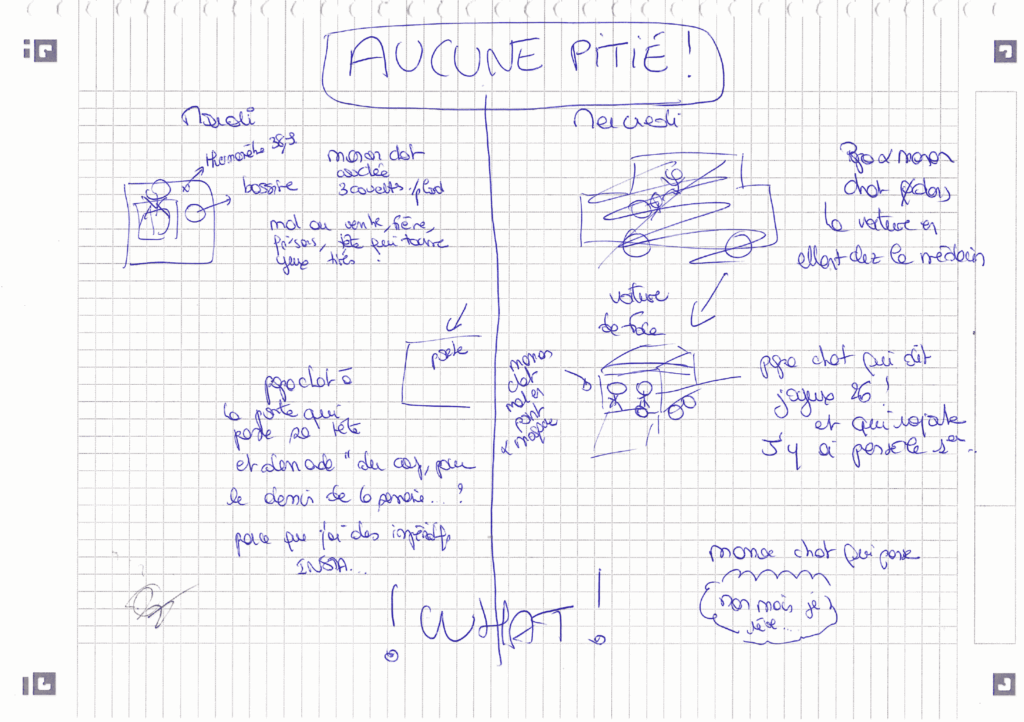 AUCUNE PITIÉ !
Mardi
thermomètre 38,9
bassine
maman chat
couchée
3 couvertures / plaid
mal au ventre, fièvre,
frissons, tête qui tourne
yeux tirés
porte
papa chat à
la porte qui
passe sa tête
et demande "du coup, pour
le dessin de la semaine... ?
parce que j'ai des impératifs,
INSTA...
Mercredi
Papa & maman
chat dans
la voiture en
allant chez le médecin
voiture
de face
maman
chat
malade
papa chat qui dit
joyeux 26 !
et qui rajoute
J'y ai pensé le 1er..
maman chat qui pense
non mais je
rêve...
! WHAT !